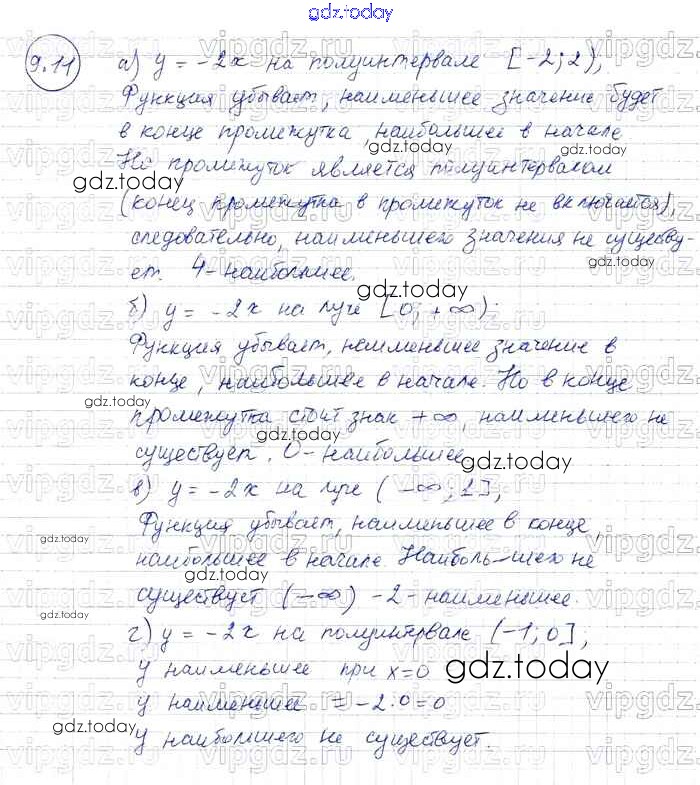 gdz.today
9.11 а) y = -2x на полуинтервале [-2; 2),
Функция убывает, наименьшее значение будет
в конце промежутка, наибольшее в начале.
Но промежуток является полуинтервалом
gdz.today
gdz.today
(конец промежутка в промежуток не включается),
следовательно, наименьшего значения не существу-
gdz.today
ет. 4-наибольшее.
gdz.today
б) y = -2x на луче [0; +∞):
Функция убывает, наименьшее значение в
конце, наибольшее в начале. Но в конце
gdz.today
промежутка стоит знак +∞, наименьшего не
gdz.today
существует. 0-наибольшее
gdz.today
в) y = -2x на луче (-∞; 1],
Функция убывает, наименьшее в конце,
gdz.today
наибольшее в начале. Наиболь-шего не
gdz.today
существует (-∞) -2-наименьшее.
gdz.today
г) y = -2x на полуинтервале (-1; 0],
y наименьшее при x=0
gdz.today
y наименьшее = -2·0=0
gdz.today
y наибольшего не существует.